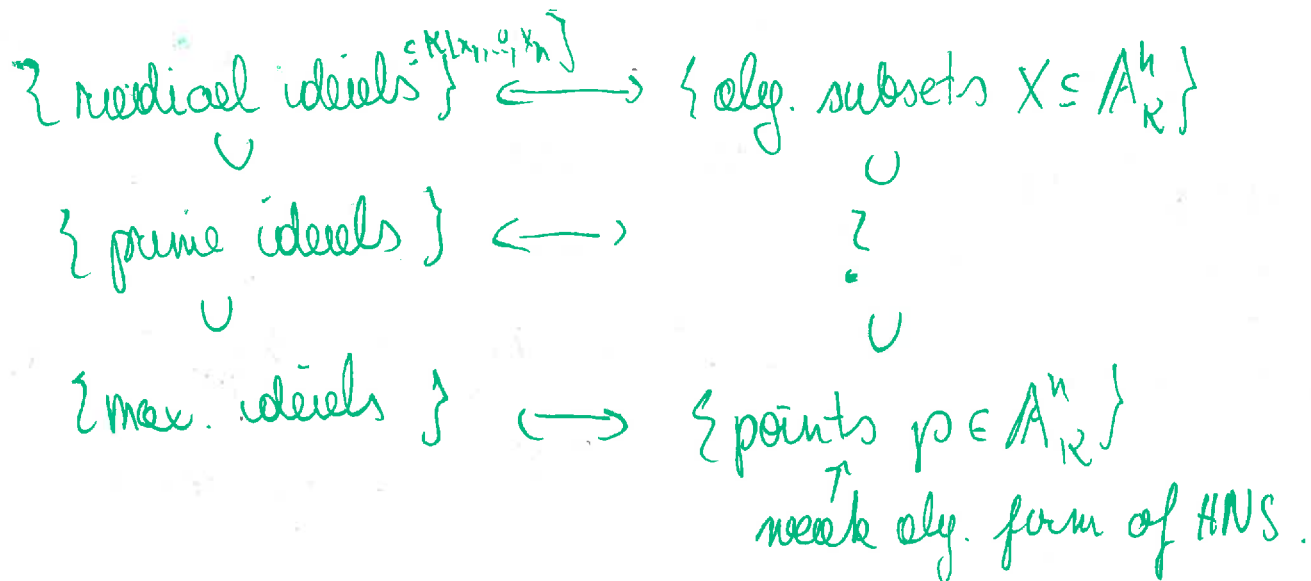 { radical ideals ⊆ K[x₁,…,xₙ] } ⟷ { alg. subsets X ⊆ 𝔸ⁿ_K }
∪ ∪
{ prime ideals } ⟷ ?
∪ ∪
{ max. ideals } ⟷ { points p ∈ 𝔸ⁿ_K }
↑
weak alg. form of HNS.